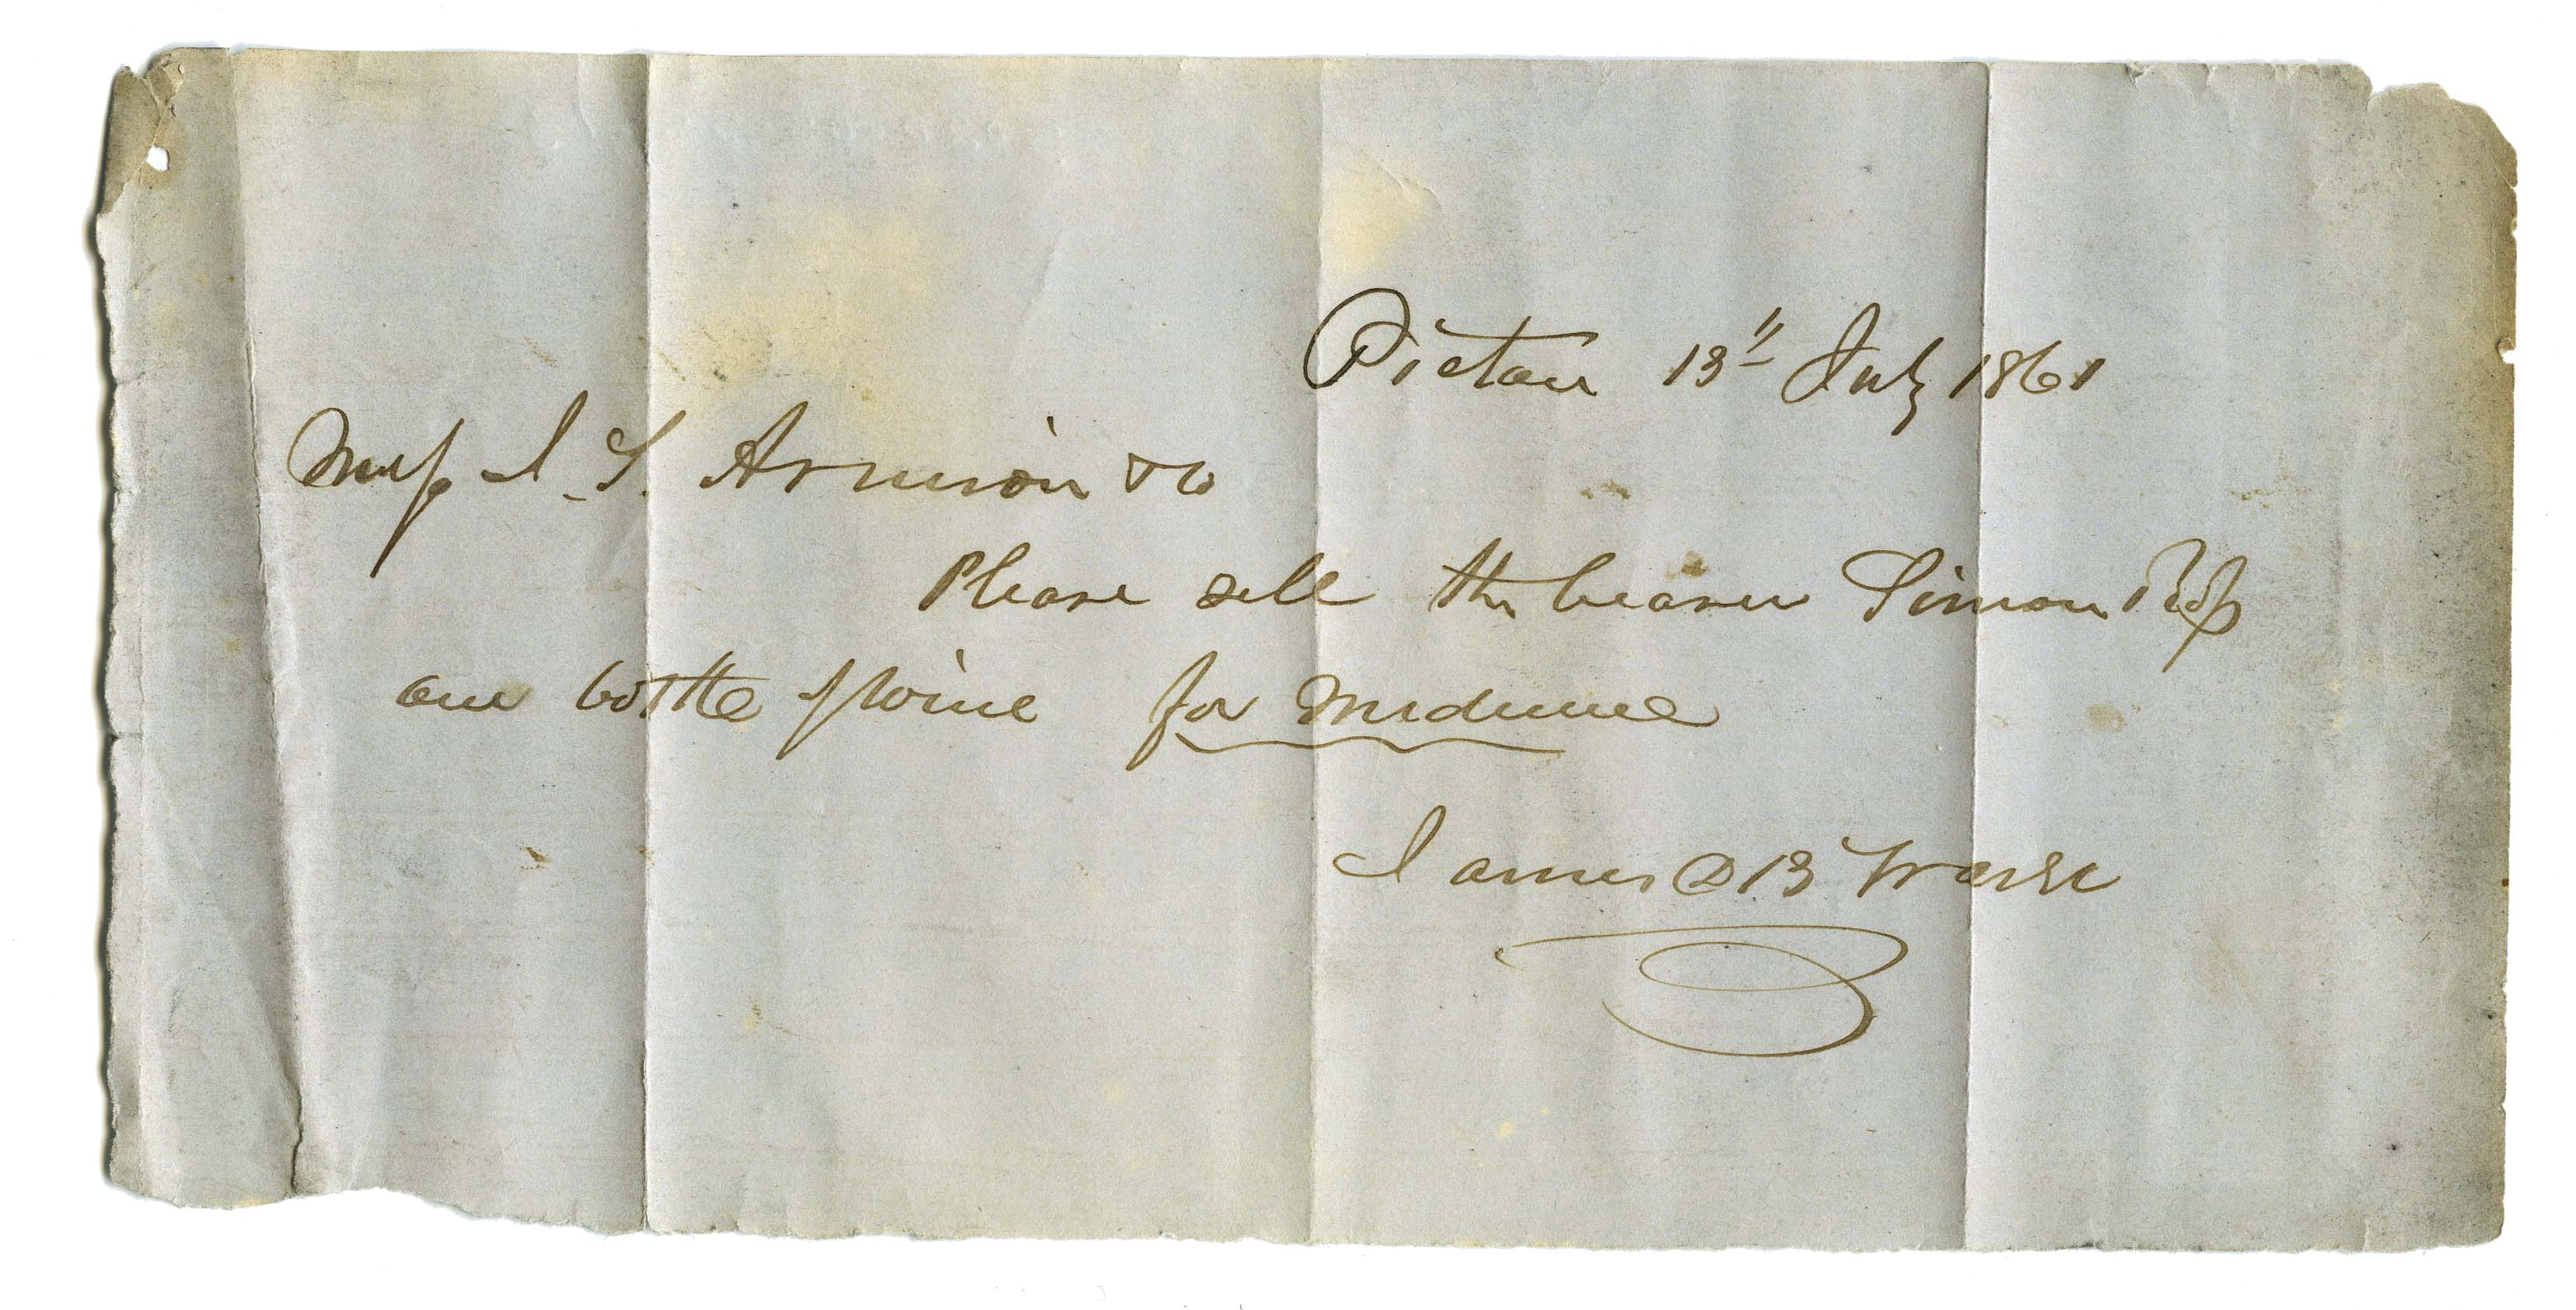 Pictou 13" July 1861
Messrs I. S. Arnison & Co
Please sell the bearer Simon Ross
one bottle of Wine for Medicine
James D B Fraser